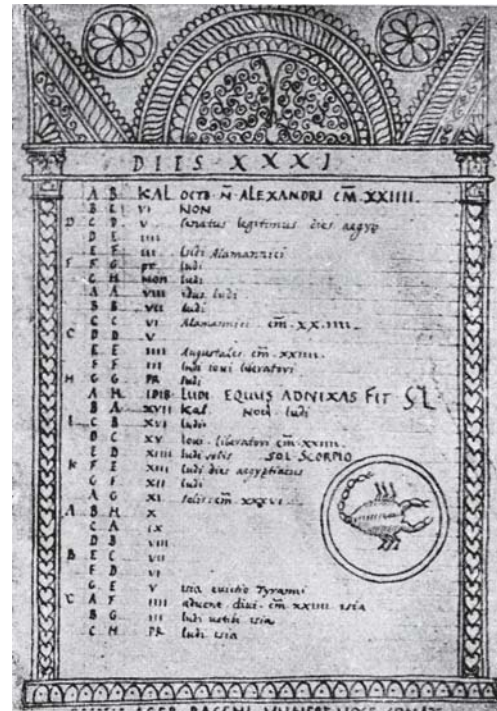 DIES XXXI
A B KAL OCTB N ALEXANDRI CM XXIIII
B C VI NON
D C D V Senatus legitimus dies aegyp
D E IIII
E F III ludi Alamannici
F F G PR ludi
G H NON ludi
A A VIII idus ludi
B B VII ludi
C C VI Alamannici CM XX IIII
C D D V
E E IIII Augustales CM XXIIII
F F III ludi iovi liberatori
H G G PR ludi
A H IDIB LUDI EQUUS ADNIXAS FIT
B A XVII KAL NOV ludi
I C B XVI ludi
D C XV iovi liberatori CM XXIIII
E D XIIII ludi solis SOL SCORPIO
K F E XIII ludi dies aegyptiacus
G F XII ludi
A G XI solis CM XXXVI
A B H X
C A IX
D B VIII
B E C VII
F D VI
G E V isia evictio Tyranni
C A F IIII advent divi CM XXIIII isia
B G III ludi isia
C H PR ludi isia